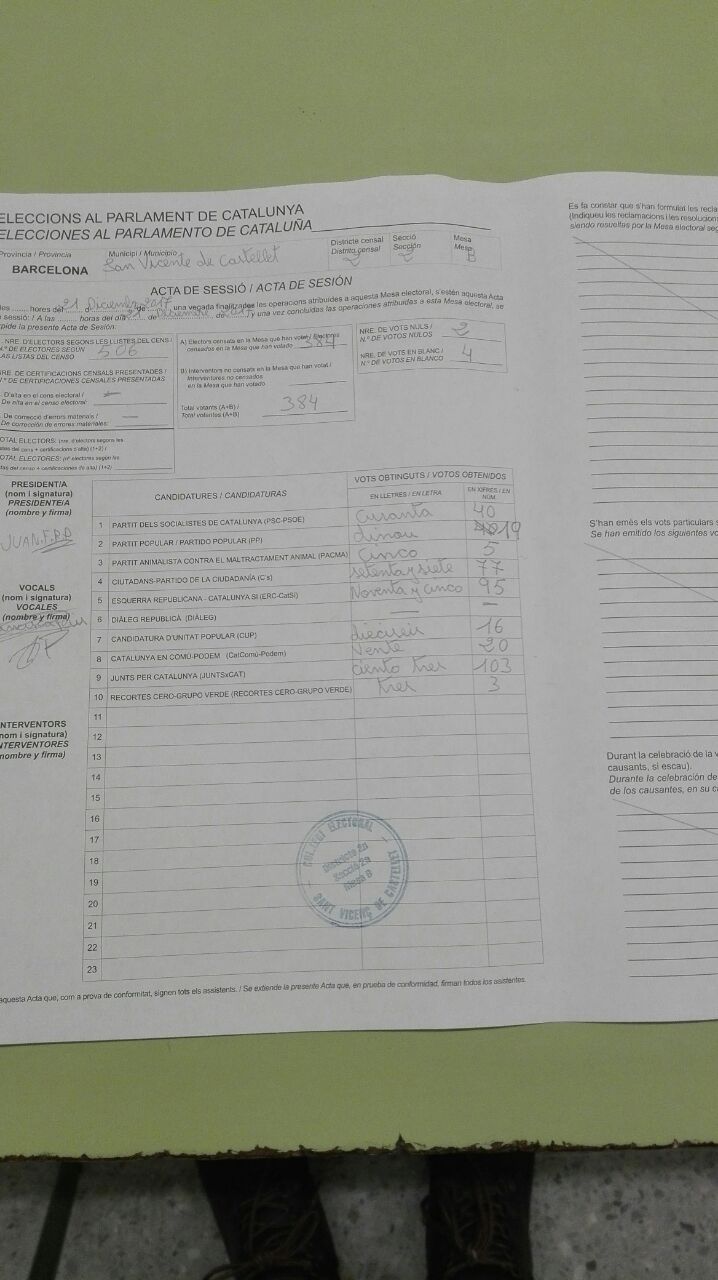 ELECCIONS AL PARLAMENT DE CATALUNYA
ELECCIONES AL PARLAMENTO DE CATALUÑA
Provincia / Provincia
BARCELONA
Municipi / Municipio
San Vicente de Castellet
Districte censal
Distrito censal
2
Secció
Sección
2
Mesa
Mesa
B
ACTA DE SESSIÓ / ACTA DE SESIÓN
hores del 21 Diciembre 2017 una vegada finalitzades les operacions atribuïdes a aquesta Mesa electoral, s'estén aquesta Acta
sessió: / A las ........ horas del día 21 de Diciembre de 2017 y una vez concluidas las operaciones atribuidas a esta Mesa electoral, se
pide la presente Acta de Sesión:
NRE. D'ELECTORS SEGONS LES LLISTES DEL CENS /
N.º DE ELECTORES SEGÚN
LAS LISTAS DEL CENSO
506
NRE. DE CERTIFICACIONS CENSALS PRESENTADES /
N.º DE CERTIFICACIONES CENSALES PRESENTADAS
D'alta en el cens electoral /
De alta en el censo electoral: —
De correcció d'errors materials /
De corrección de errores materiales: —
TOTAL ELECTORS: (nre. d'electors segons les
llistes del cens + certificacions d'alta) (1+2) /
TOTAL ELECTORES: (nº electores según las
listas del censo + certificaciones de alta) (1+2)
A) Electors censats en la Mesa que han votat / Electores
censados en la Mesa que han votado 384
B) Interventors no censats en la Mesa que han votat /
Interventores no censados
en la Mesa que han votado
Total votants (A+B) /
Total votantes (A+B) 384
NRE. DE VOTS NULS /
N.º DE VOTOS NULOS 2
NRE. DE VOTS EN BLANC /
N.º DE VOTOS EN BLANCO 4
PRESIDENT/A
(nom i signatura)
PRESIDENTE/A
(nombre y firma)
VOCALS
(nom i signatura)
VOCALES
(nombre y firma)
INTERVENTORS
(nom i signatura)
INTERVENTORES
(nombre y firma)
CANDIDATURES / CANDIDATURAS
VOTS OBTINGUTS / VOTOS OBTENIDOS
EN LLETRES / EN LETRA
EN XIFRES / EN NÚM.
1 PARTIT DELS SOCIALISTES DE CATALUNYA (PSC-PSOE) curanta 40
2 PARTIT POPULAR / PARTIDO POPULAR (PP) dinou 19
3 PARTIT ANIMALISTA CONTRA EL MALTRACTAMENT ANIMAL (PACMA) cinco 5
4 CIUTADANS-PARTIDO DE LA CIUDADANÍA (C's) setenta y siete 77
5 ESQUERRA REPUBLICANA - CATALUNYA SÍ (ERC-CatSí) Noventa y cinco 95
6 DIÀLEG REPUBLICÀ (DIÀLEG) — —
7 CANDIDATURA D'UNITAT POPULAR (CUP) diecieis 16
8 CATALUNYA EN COMÚ-PODEM (CatComú-Podem) Vente 20
9 JUNTS PER CATALUNYA (JUNTSxCAT) ciento tres 103
10 RECORTES CERO-GRUPO VERDE (RECORTES CERO-GRUPO VERDE) tres 3
11
12
13
14
15
16
17
18
19
20
21
22
23
COL·LEGI ELECTORAL
Districte 2n
Secció 2a
Mesa B
SANT VICENÇ DE CASTELLET
aquesta Acta que, com a prova de conformitat, signen tots els assistents. / Se extiende la presente Acta que, en prueba de conformidad, firman todos los asistentes.
Es fa constar que s'han formulat les recla
(Indiqueu les reclamacions i les resolucion
siendo resueltas por la Mesa electoral seg
S'han emès els vots particulars s
Se han emitido los siguientes vo
Durant la celebració de la v
causants, si escau).
Durante la celebración de
de los causantes, en su c